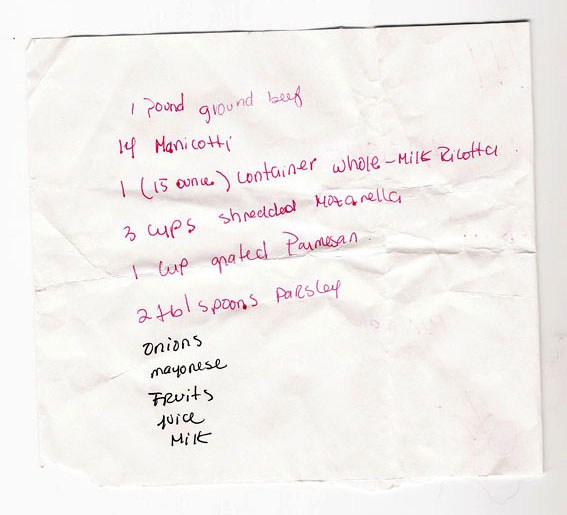 1 Pound ground beef
14 Manicotti
1 (15 ounce) container whole-Milk Ricotta
3 cups shredded Mozarella
1 cup grated Parmesan
2 tblspoons Parsley
onions
mayonese
FRuits
juice
Milk